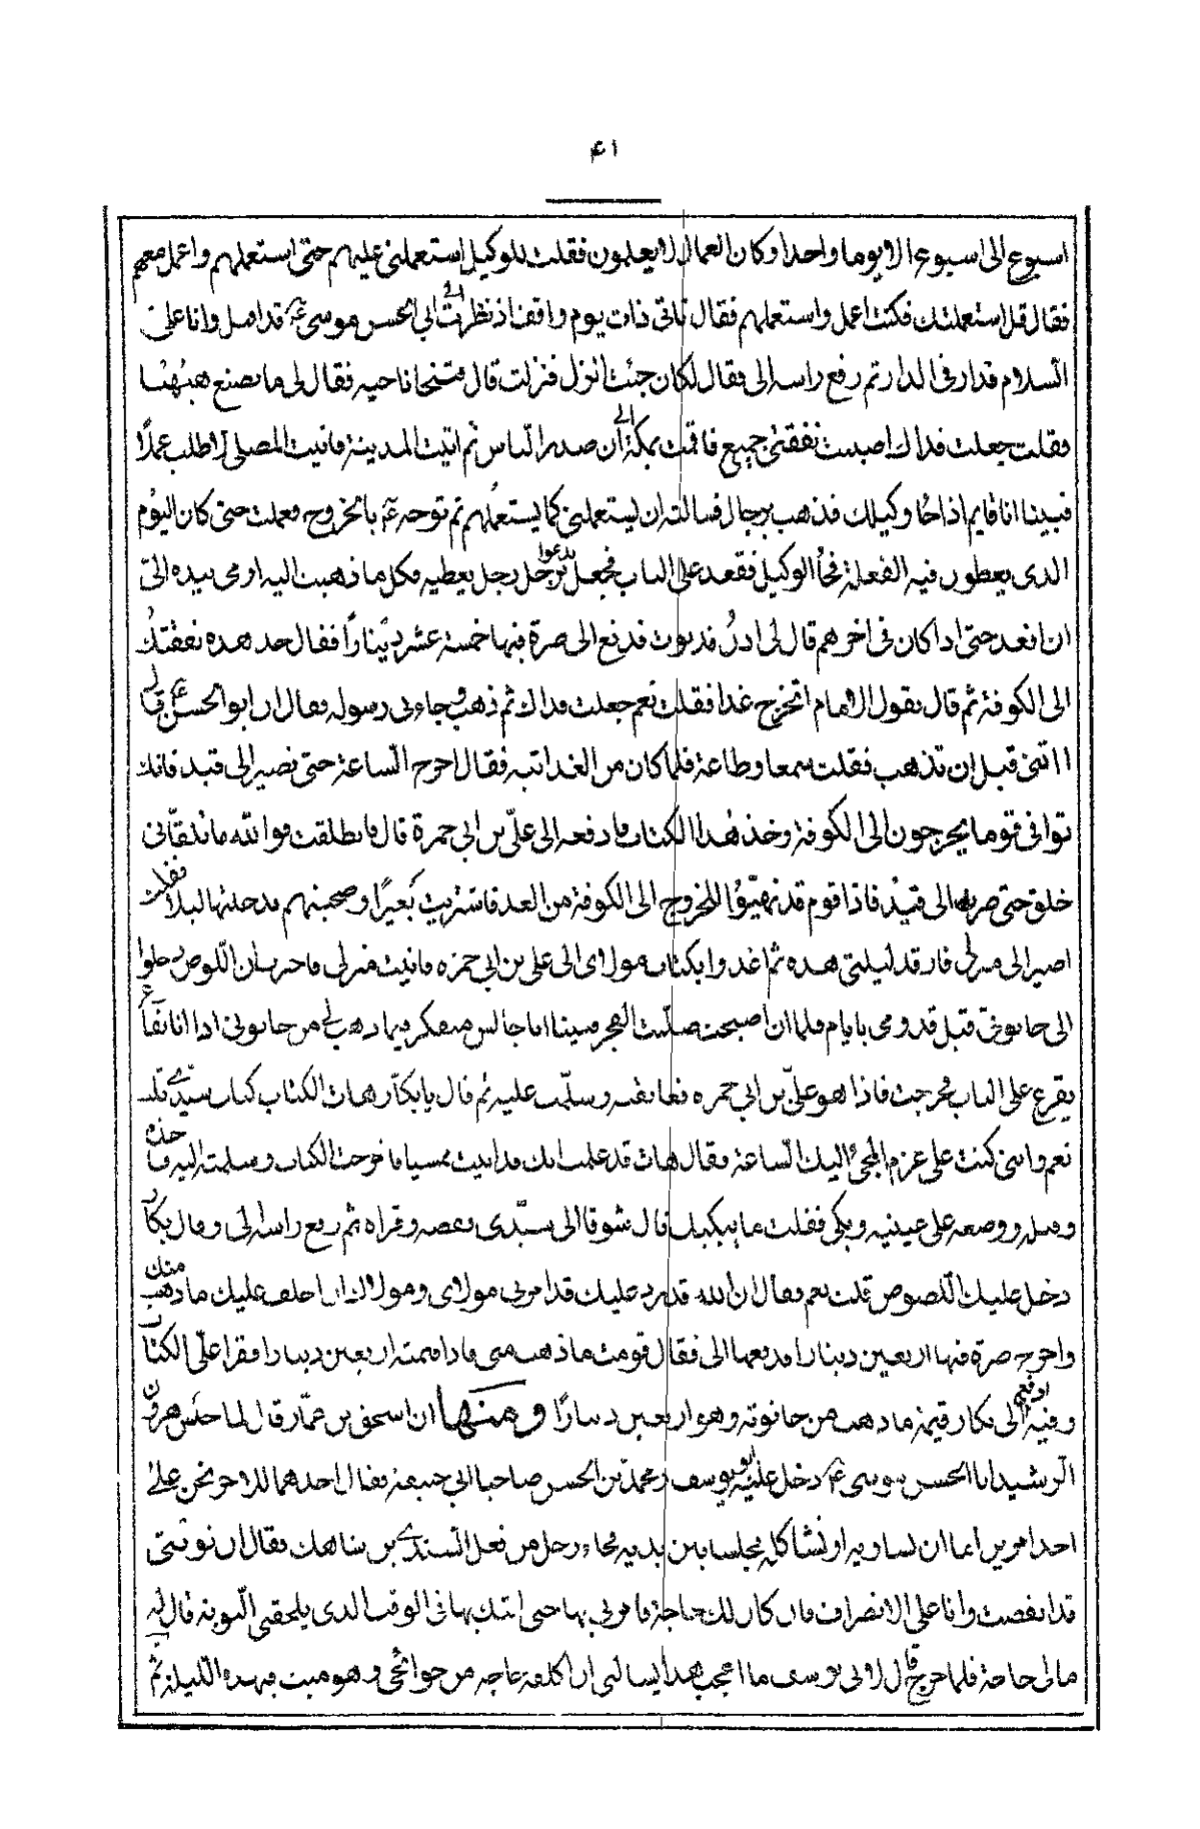 ۴۱
اسبوع الى اسبوع الا يوما واحدا وكان العمال لا يعلمون فقلت للوكيل استعملنى عليهم حتى استعملهم واعمل معهم
فقال قد استعملتك فكنت اعمل واستعملهم فقال فانى ذات يوم واقف اذ نظرت الى ابى الحسن موسى ع قد اقبل وانا على
السلام قد دار فى الدار ثم رفع راسه الى فقال بكار جئت انزل فنزلت قال فتنحا ناحيه فقال لى ما تصنع هيهنا
فقلت جعلت فداك اصبت نفقتى جميع فاقمت بمكة الى ان صدر الناس ثم اتيت المدينة فاتيت المصلى لاطلب عملا
فبينا انا قايم اذا جاء وكيلك فذهب برجال فسالته ان يستعملنى كما يستعملهم ثم توجه ع بالخروج فعملت حتى كان اليوم
الذى يعطون فيه الفعلة فجاء الوكيل فقعد على الباب فجعل يدعوا برجل رجل يعطيه فكل ما ذهبت اليه اومى بيده الى
ان اقعد حتى اذا كان فى اخرهم قال لى ادن فدنوت فدفع الى صرة فيها خمسة عشر دينارا فقال خذ هذه نفقتك
الى الكوفة ثم قال يقول الامام اتخرج غدا فقلت نعم جعلت فداك ثم ذهب وجاءنى رسوله فقال ان ابو الحسن ع قال لى
ائتنى قبل ان تذهب فقلت سمعا وطاعة فلما كان من الغد اتيته فقال اخرج الساعة حتى تصير الى فيد فانك
توافى قوما يخرجون الى الكوفة وخذ هذا الكتاب فادفعه الى على بن ابى حمزة قال فانطلقت فوالله ما تلقانى
خلق حتى صرت الى فيد فاذا قوم قد تهيؤا للخروج الى الكوفة من الغد فاشتريت بعيرا وصحبتهم فدخلتها ليلا فقلت
اصير الى منزلى فارقد ليلتى هذه ثم اغدوا بكتاب مولاى الى على بن ابى حمزه فاتيت منزلى فاخبرت ان اللصوص دخلوا
الى حانوتى قبل قدومى بايام فلما ان اصبحت صليت الفجر فبينا انا جالس متفكر فيما ذهب لى من حانوتى اذا انا بقارع
يقرع على الباب فخرجت فاذا هو على بن ابى حمزه فعانقته وسلمت عليه ثم قال يا بكار هات الكتاب كتاب سيدى قلت
نعم واننى كنت على عزم المجئ اليك الساعة فقال هات قد علمت انك قد اتيت ممسيا فاخرجت الكتاب وسلمته اليه فاخذه
وقبله ووضعه على عينيه وبكى فقلت ما يبكيك قال شوقا الى سيدى وفضه وقراه ثم رفع راسه الى وقال بكار
دخل عليك اللصوص قلت نعم فقال ان الله قد رد عليك قد امرنى مولاى ومولاك ان اخلف عليك ما ذهب منك
واخرج صرة فيها اربعين دينارا فدفعها الى فقال قومت ما ذهب منى فاذا قيمته اربعين دينارا فقرا على الكتاب
وفيه ادفع الى بكار قيمة ما ذهب من حانوته وهو اربعين دينارا ومنها ان اسحق بن عمار قال لما حبس هرون
الرشيد ابا الحسن موسى ع دخل عليه ابو يوسف ومحمد بن الحسن صاحبا ابى حنيفة فقال احدهما للاخر نحن على
احد امرين اما ان نساويه او نشاكله فجلسا بين يديه فجاء رجل من قبل السندى بن شاهك فقال ان نوبتى
قد انقضت وانا على الانصراف فان كان لك حاجة فامرنى بها حتى اتيك بها فى الوقت الذى يلحقنى النوبة قال له
مالى حاجة فلما خرج قال لابى يوسف ما اعجب هذا يسالنى ان اكلفه حاجه من حوائجى وهو ميت فى هذه الليلة ثم